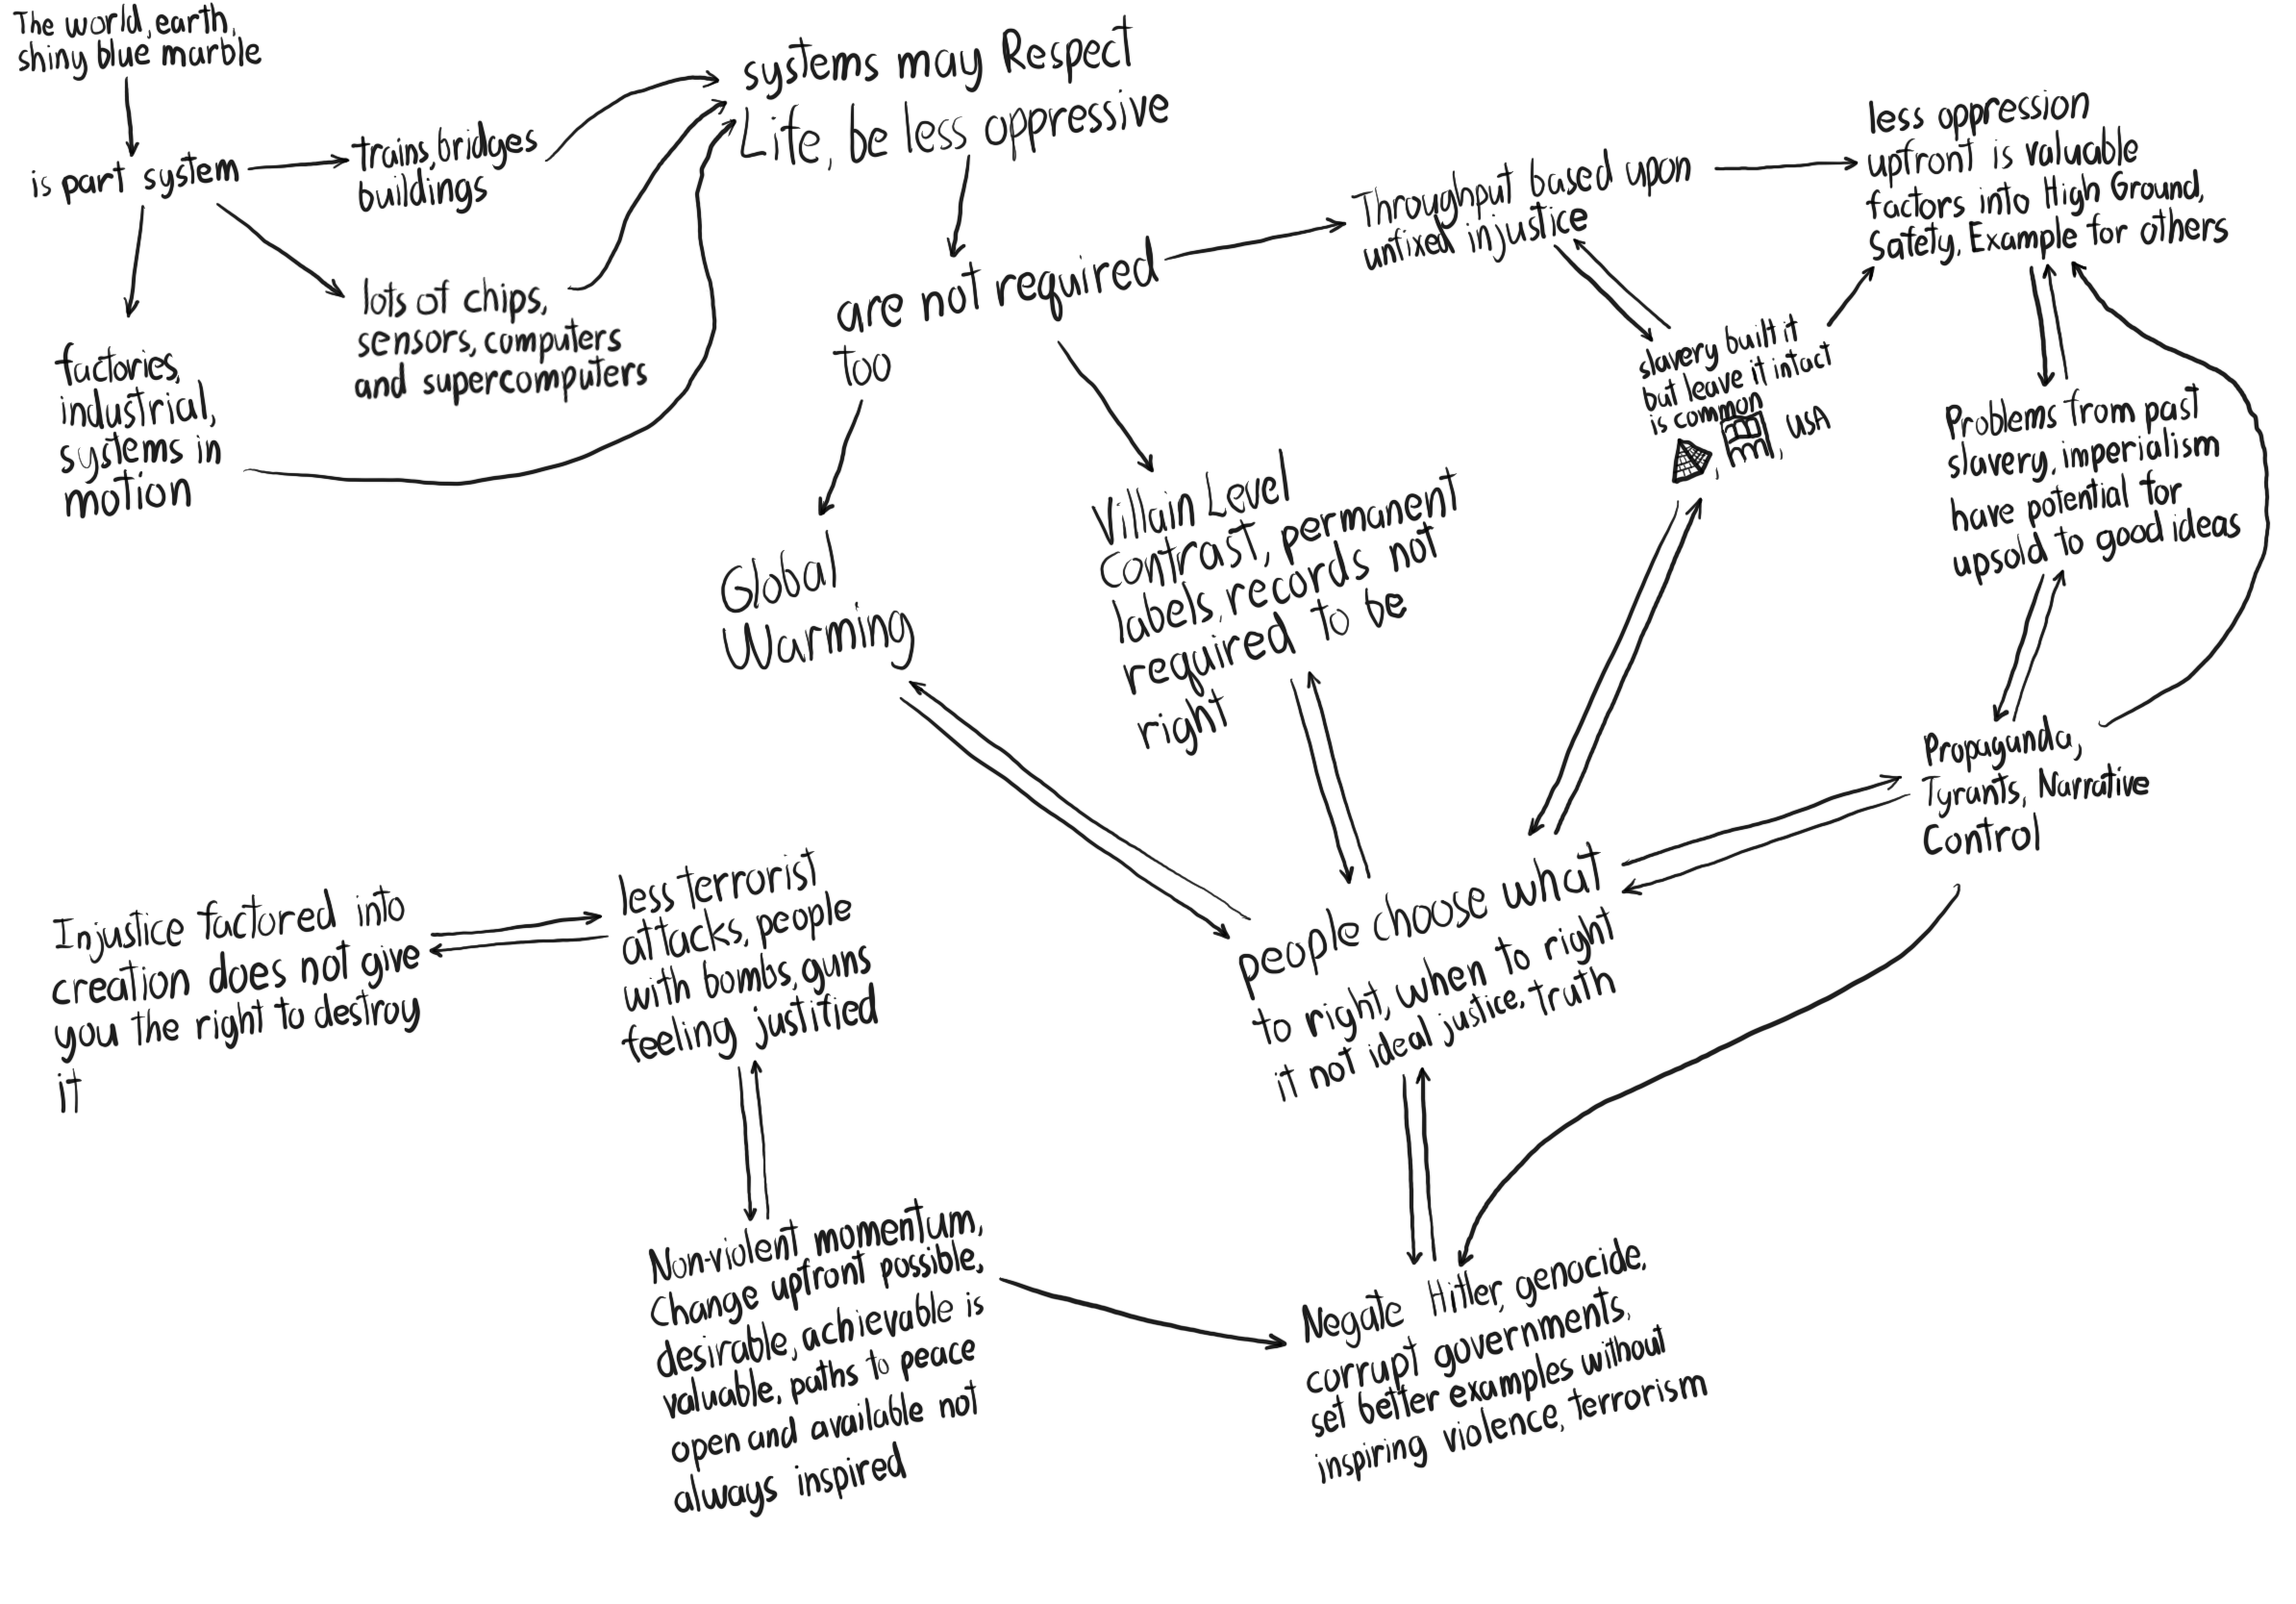 The world, earth,
shiny blue marble
is part system
trains, bridges
buildings
lots of chips,
sensors, computers
and supercomputers
factories,
industrial,
systems in
motion
systems may Respect
Life, be less oppressive
are not required
too
Global
Warming
Villain Level
Contrast, permanent
labels, records not
required to be
right
Throughput based upon
unfixed injustice
slavery built it
but leave it intact
is common
, , USA
less oppression
upfront is valuable
factors into High Ground,
Safety, Example for others
Problems from past
slavery, imperialism
have potential for
upsold to good ideas
Propaganda,
Tyrants, Narrative
Control
people choose what
to right, when to right
it not ideal justice, truth
Injustice factored into
creation does not give
you the right to destroy
it
less terrorist
attacks, people
with bombs, guns
feeling justified
Non-violent momentum,
Change upfront possible,
desirable, achievable is
valuable, paths to peace
open and available not
always inspired
Negate Hitler, genocide,
corrupt governments,
set better examples without
inspiring violence, terrorism